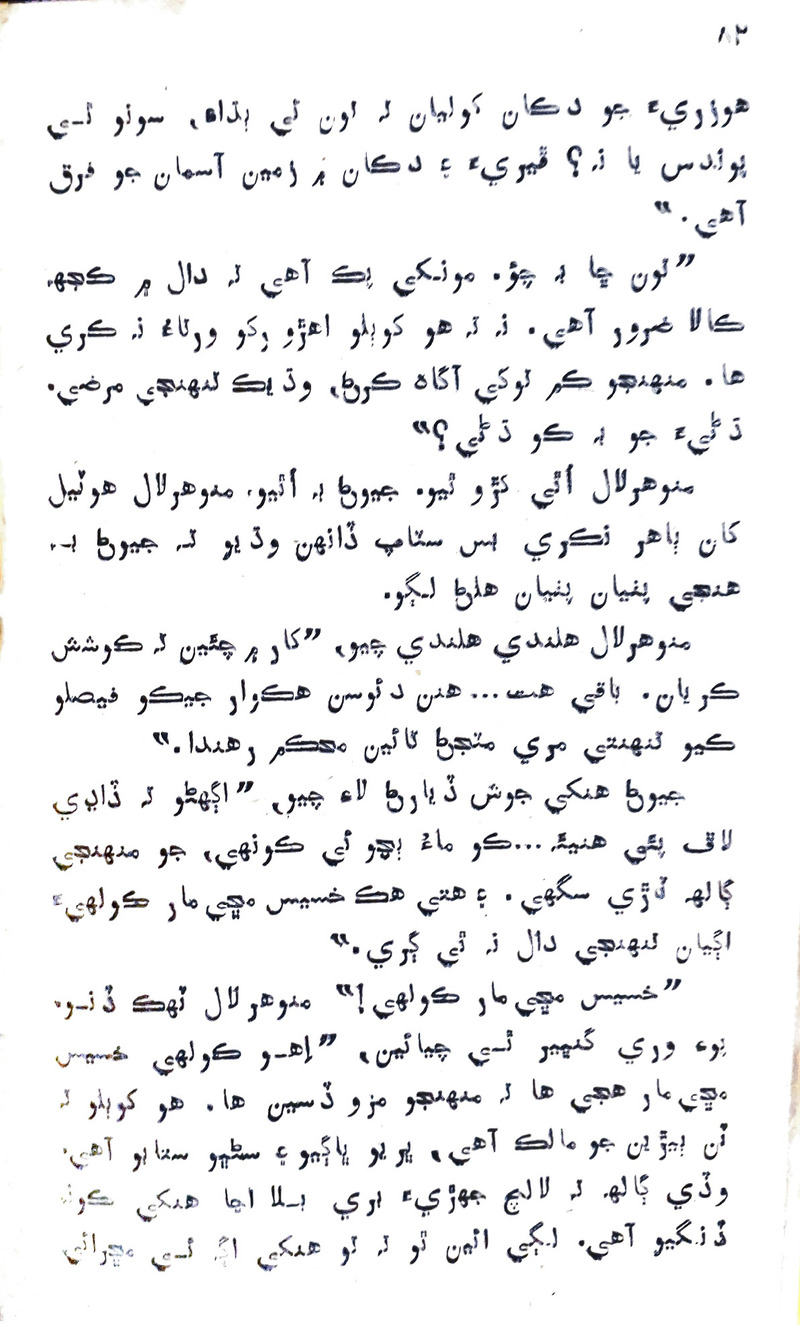 ۸۲
هوزريءَ جو دڪان کوليان تہ تون ئي ٻڌاءِ، سولو ٿي
پوندس يا نہ؟ ڦيريءَ ۽ دڪان ۾ زمين آسمان جو فرق
آهي.“
”تون ڇا بہ چؤ. مونکي پڪ آهي تہ دال ۾ ڪجهہ
ڪالا ضرور آهي. نہ تہ هو کوٻلو اهڙو رکو ورتاءُ نہ ڪري
ها. منهنجو ڪم توکي آگاہ ڪرڻ، وڌيڪ تنهنجي مرضي.
ڌڻيءَ جو بہ ڪو ڌڻي؟“
منوهرلال اُٿي کڙو ٿيو. جيوڻ بہ اُٿيو. منوهرلال هوٽيل
کان ٻاهر نڪري بس سٽاپ ڏانهن وڌيو تہ جيوڻ بہ
هنجي پٺيان پٺيان هلڻ لڳو.
منوهرلال هلندي هلندي چيو، ”کار ۾ چئين تہ ڪوشش
ڪريان. باقي هت... هنن دئوسن هڪوار جيڪو فيصلو
ڪيو تنهنتي مري مٽجڻ تائين محڪم رهندا.“
جيوڻ هنکي جوش ڏيارڻ لاءِ چيو، ”اڳهڻو تہ ڏاڍي
لاف پئي هنيئہ...ڪو ماءُ ٻچو ئي ڪونهي، جو منهنجي
ڳالهہ ٽڙي سگهي. ۽ هتي هڪ خسيس مڇي مار ڪولهيءَ
اڳيان تنهنجي دال نہ ٿي ڳري.“
”خسيس مڇي مار ڪولهي!“ منوهرلال ٽهڪ ڏنو.
پوءِ وري گنڀير ٿي چيائين، ”اِهو ڪولهي خسيس
مڇي مار هجي ها تہ منهنجو مزو ڏسين ها. هو کوٻلو تہ
ٽن ٻيڙين جو مالڪ آهي، ڀريو ڀاڳيو ۽ سڻڀو ستاٻو آهي.
وڏي ڳالهہ تہ لالچ جهڙيءَ بري بلا اڃا هنکي ڪونہ
ڏنگيو آهي. لڳي ائين ٿو تہ تو هنکي اڳ ئي مڇرائي